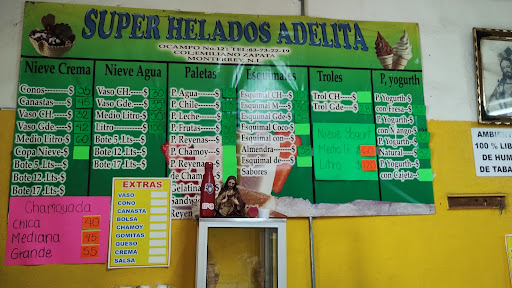 SUPER HELADOS ADELITA
OCAMPO No 12; TEL:83-73-22-19
COL:EMILIANO ZAPATA
MONTERREY, N.L
Nieve Crema
Conos----$
Canastas---$
Vaso CH---$
Vaso Gde---$
Medio Litro-$ 60
Copa Nieve
Bote 5.Lts---$
Bote 12.Lts--$
Bote 17.Lts--$
Nieve Agua
Vaso CH---$
Vaso Gde---$
Medio Litro-$
Litro------$
Bote 5.Lts---$
Bote 12.Lts--$
Bote 17.Lts--$
Paletas
P. Agua-----$
P. Chile----$
P. Leche----$
P. Frutas---$
P. Revenas--$
P. Chamoy---$
P. Revenas
de Chamoy
Gelatina
Sandw
Reven
Esquimales
Esquimal CH---$
Esquimal M----$
Esquimal Gde--$
Esquimal Coco
Esquimal con
Almendra----$
Esquimal de---$
Sabores
Troles
Trol CH----$
Trol Gde---$
Nieve Yogurt
Medio L
Litro
P, yogurth
P, Yogurth
con Fresa--$
P, Yogurth
con Mango-$
P, Yogurth
Natural---$
P, Yogurth
con Cajeta-$
Chamoyada
Chica 40
Mediana 45
Grande 55
EXTRAS
VASO
CONO
CANASTA
BOLSA
CHAMOY
GOMITAS
QUESO
CREMA
SALSA
AMBIENTE
100 % LIB
DE HUM
DE TABA